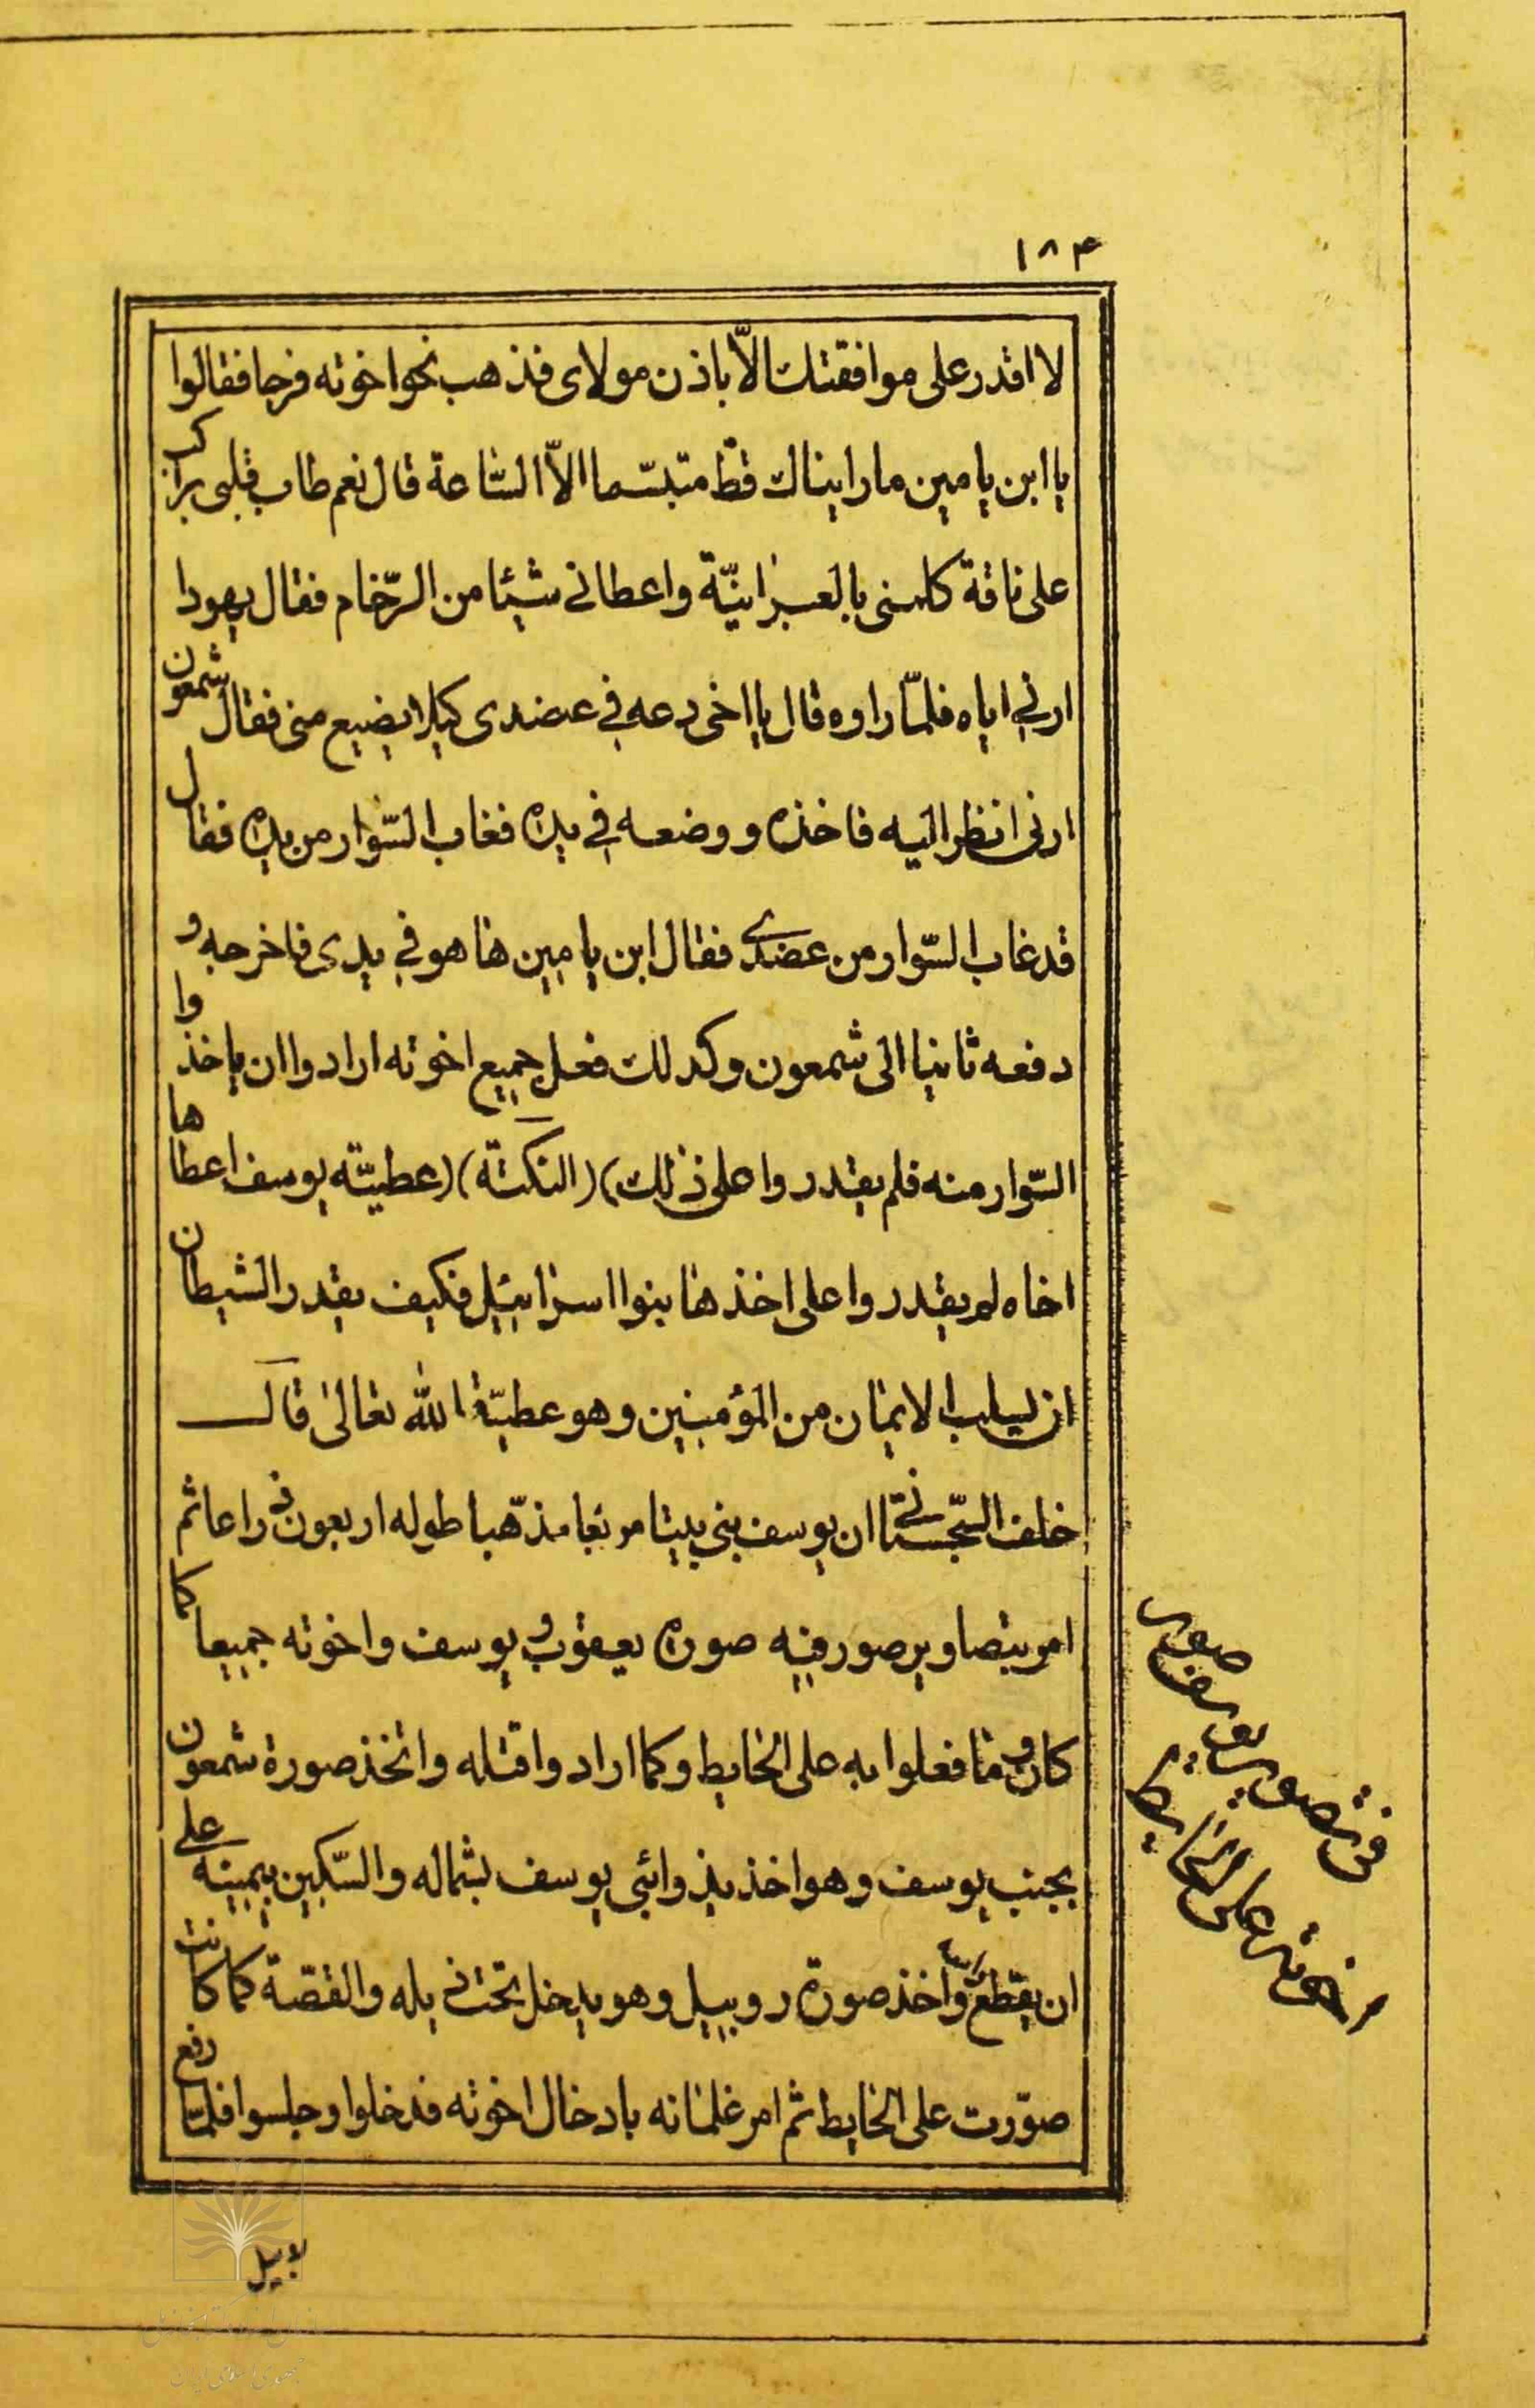 ١٨۴
لا اقدر علی موافقتك الّا باذن مولای فذهب نحو اخوته فرحا فقالوا
یا ابن یامین ما رایناك قطّ متبسّما الاّ السّاعة قال نعم طاب قلبی براکب
علی ناقة کلمنی بالعبرانیّة واعطانی شیئا من الرّخام فقال یهودا
ارنی ایاه فلمّا راوه قال یا اخی دعه فی عضدی کیلا یضیع منی فقال شمعون
ارنی انظر الیه فاخذه ووضعه فی یده فغاب السّوار من یده فقال
قد غاب السّوار من عضدی فقال ابن یامین ها هو فی یدی فاخرجه و
دفعه ثانیا الی شمعون وکذلك فعل جمیع اخوته ارادوا ان یاخذوا
السّوار منه فلم یقدروا علی ذلك) (النکتة) (عطیّته یوسف اعطاها
اخاه لم یقدروا علی اخذها بنوا اسرائیل فکیف یقدر الشیطان
ان یسلب الایمان من المؤمنین وهو عطیّة الله تعالی قال
خلف السّجستانی ان یوسف بنی بیتا مربعا مذهّبا طوله اربعون ذراعا ثم
امر بتصاویر صور فیه صورة یعقوب و یوسف واخوته جمیعا کما
کانوا وما فعلوا به علی الحایط وکما ارادوا قتله واتخذ صورة شمعون
بجنب یوسف وهو اخذ بذوائبی یوسف بشماله والسّکین بیمینه علی
ان یقطع واخذ صورة روبیل وهو یدخل تحت ذیله والقصّة کما کانت
صوّرت علی الحایط ثم امر غلمانه بادخال اخوته فدخلوا وجلسوا فلمّا رفع
یوسف صور
اخوته علی